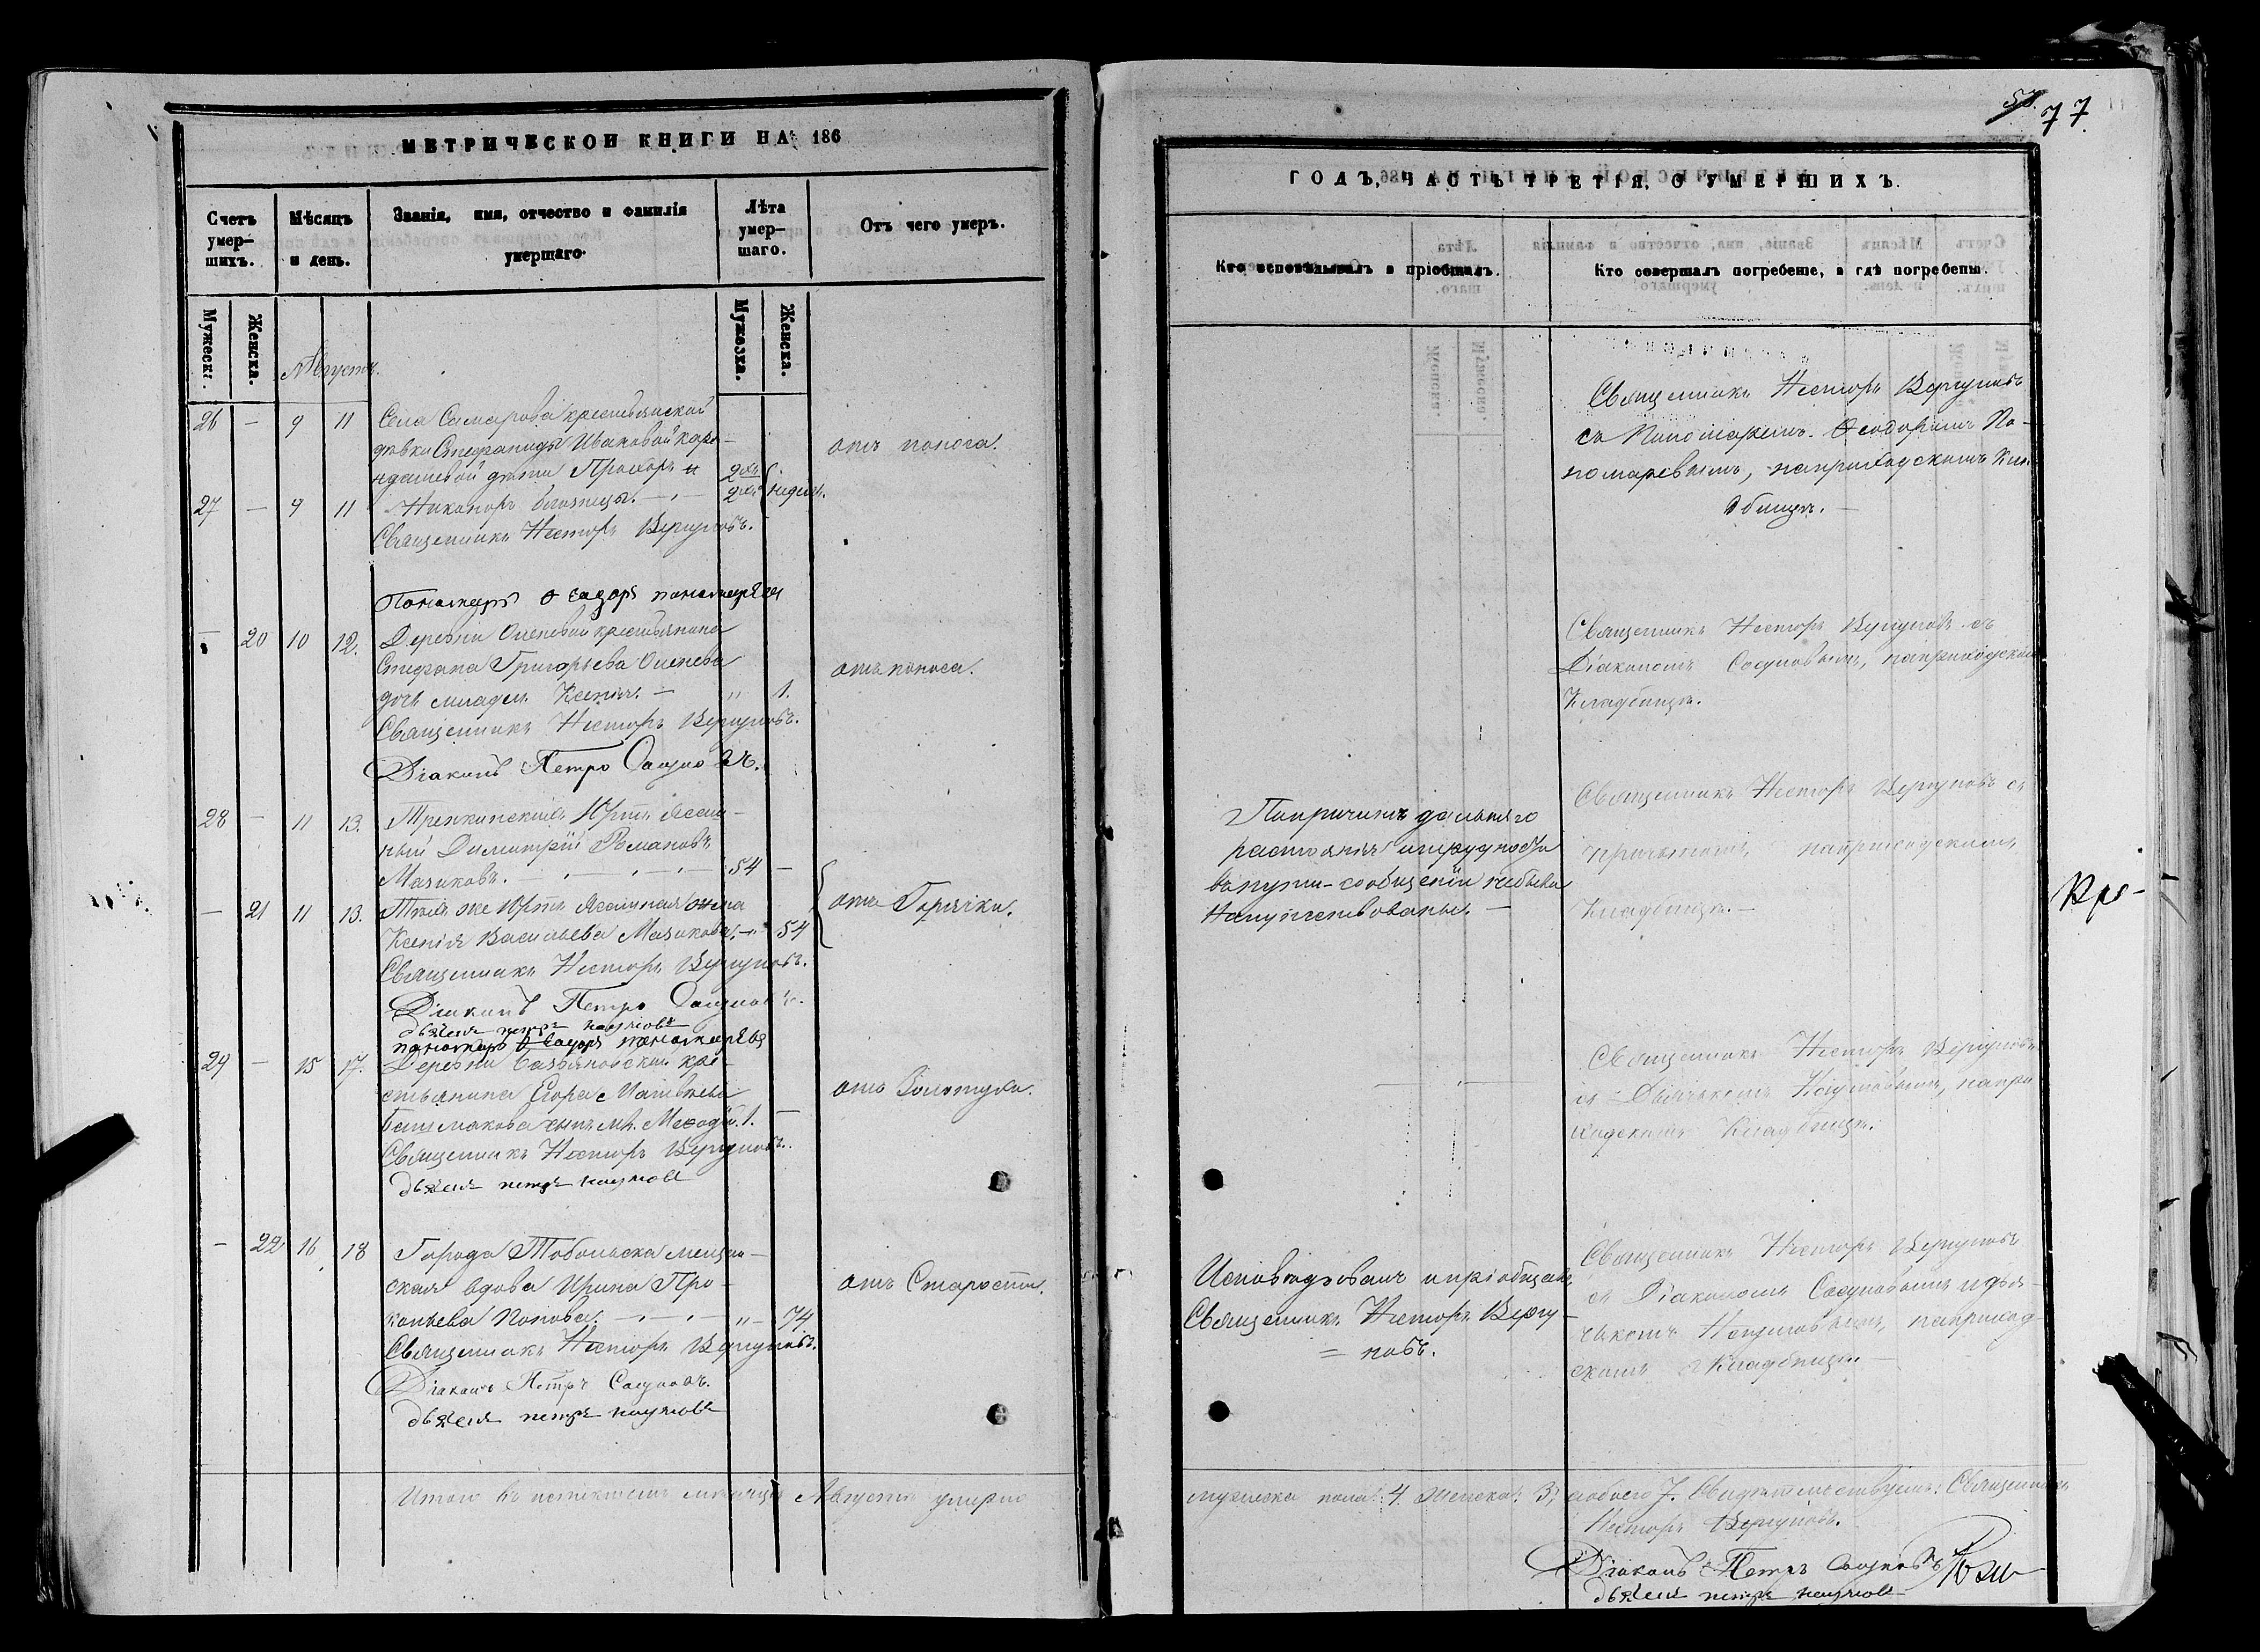 МЕТРИЧЕСКОЙ КНИГИ НА 186
Счетъ умер-
шихъ.
Мѣсяцъ
и день.
Званія, имя, отчество и фамилія
умершаго.
Лѣта
умер-
шаго.
Отъ чего умеръ.
Мужеск.
Женска.
Мужезка.
Женска.
Августъ.
26 — 9 11 Села Самарова крестьянской
дѣвки Стефаниды Ивановой Кара-
ндашевой дѣти Прохоръ и 2хъ
отъ поноса.
27 — 9 11 Никаноръ близнецы. 2хъ недель.
Священникъ Несторъ Вергуновъ.
Пономарь Ѳеодоръ Пономаревъ
— 20 10 12. Деревни крестьянина
Стефана Григорьева
дочь младен. Ксенія. — " 1.
отъ поноса.
Священникъ Несторъ Вергуновъ.
Діаконъ Петръ Сосуновъ.
28 — 11 13. Юртъ Ясаш-
ный Димитрій Романовъ
Мазиковъ. 54 —
— 21 11 13. Тѣхъ же Юртъ Ясашная жена
Ксенія Васильева Мазикова. 54
отъ Горячки.
Священникъ Несторъ Вергуновъ.
Діаконъ Петръ Сосуновъ.
дьячекъ петръ наумовъ
пономарь Ѳеодоръ пономаревъ
29 — 15 17. Деревни Базьяновской кре-
стьянина Егора Матвѣева
Башмакова сынъ мл. Меѳодій. 1. —
отъ Золотухи.
Священникъ Несторъ Вергуновъ.
дьячекъ петръ наумовъ
— 22 16 18 Города Тобольска мещан-
ская вдова Ирина Про-
копьева Попова. " 74
отъ Старости.
Священникъ Несторъ Вергуновъ.
Діаконъ Петръ Сосуновъ.
дьячекъ петръ наумовъ
Итого въ мѣсяцѣ Августѣ умерло
77.
ГОДЪ, ЧАСТЬ ТРЕТІЯ, О УМЕРШИХЪ.
Кто исповѣдывалъ и пріобщалъ.
Кто совершалъ погребеніе, и гдѣ погребены.
Священникъ Несторъ Вергуновъ
съ Пономаремъ Ѳеодоромъ По-
номаревымъ, на приходскомъ кла-
дбищѣ.
Священникъ Несторъ Вергуновъ съ
Діакономъ Сосуновымъ, на приходскомъ
Кладбищѣ.
По причинѣ дальняго
разстоянія и трудности
въ пути-сообщеніи небыли
Напутствованы. —
Священникъ Несторъ Вергуновъ съ
причтомъ, на приходскомъ
Кладбищѣ. —
Священникъ Несторъ Вергуновъ
съ Дьячкомъ Наумовымъ, на при
ходскомъ Кладбищѣ.
Исповѣдывалъ и пріобщалъ
Священникъ Несторъ Вергу-
= новъ.
Священникъ Несторъ Вергуновъ
съ Діакономъ Сосуновымъ и дья-
чкомъ Наумовымъ, на приход-
скомъ Кладбищѣ. —
мужеска пола: 4. женска: 3, обоего 7. Свидѣтельствуемъ: Священникъ
Несторъ Вергуновъ.
Діаконъ Петръ Сосуновъ
дьячекъ петръ наумовъ